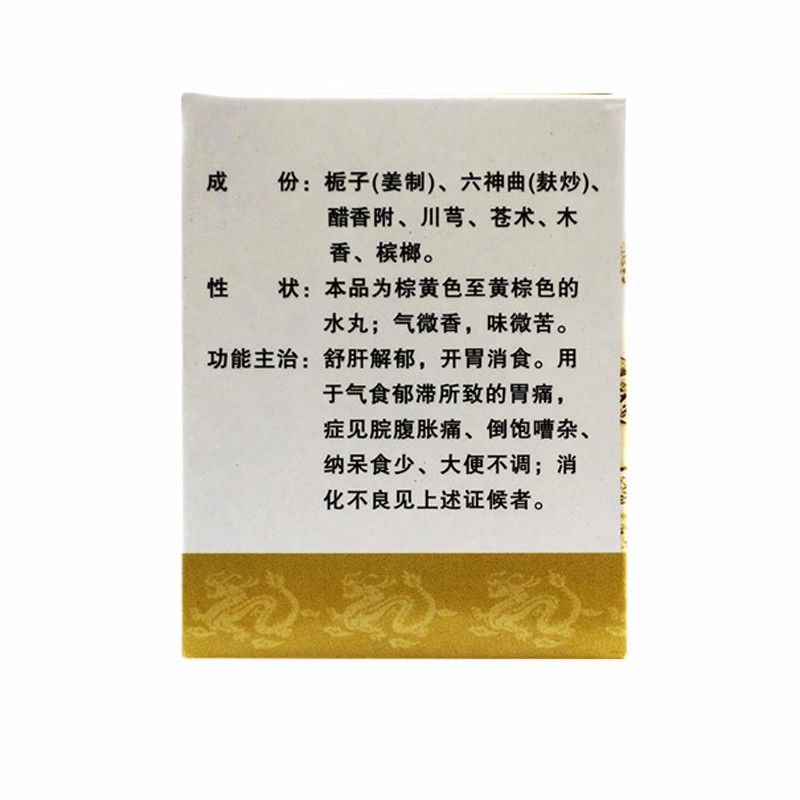 成　　份：栀子(姜制)、六神曲(麸炒)、
醋香附、川芎、苍术、木
香、槟榔。
性　　状：本品为棕黄色至黄棕色的
水丸；气微香，味微苦。
功能主治：舒肝解郁，开胃消食。用
于气食郁滞所致的胃痛，
症见脘腹胀痛、倒饱嘈杂、
纳呆食少、大便不调；消
化不良见上述证候者。